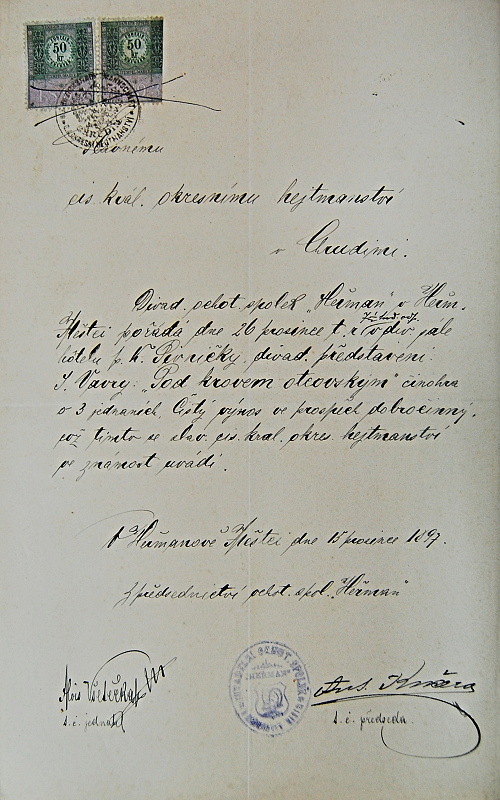 50 kr
50 kr
Slavnému
cís. král. okresnímu hejtmanství
v Chrudimi.
Divad. ochot. spolek "Heřman" v Heřm.
Městci pořádá dne 26 prosince t. r. v div. sále
hôtelu p. K. Pivničky, divad. představení:
J. Vávry: "Pod krovem otcovským" činohra
o 3 jednáních. Čistý výnos ve prospěch dobročinný,
což tímto se slav. cís. král. okres. hejtmanství
ve známost uvádí.
V Heřmanově Městci dne 15 prosince 1897.
Z předsednictví ochot. spol. "Heřman"
Alois
t. č. jednatel
Ant.
t. č. předseda.